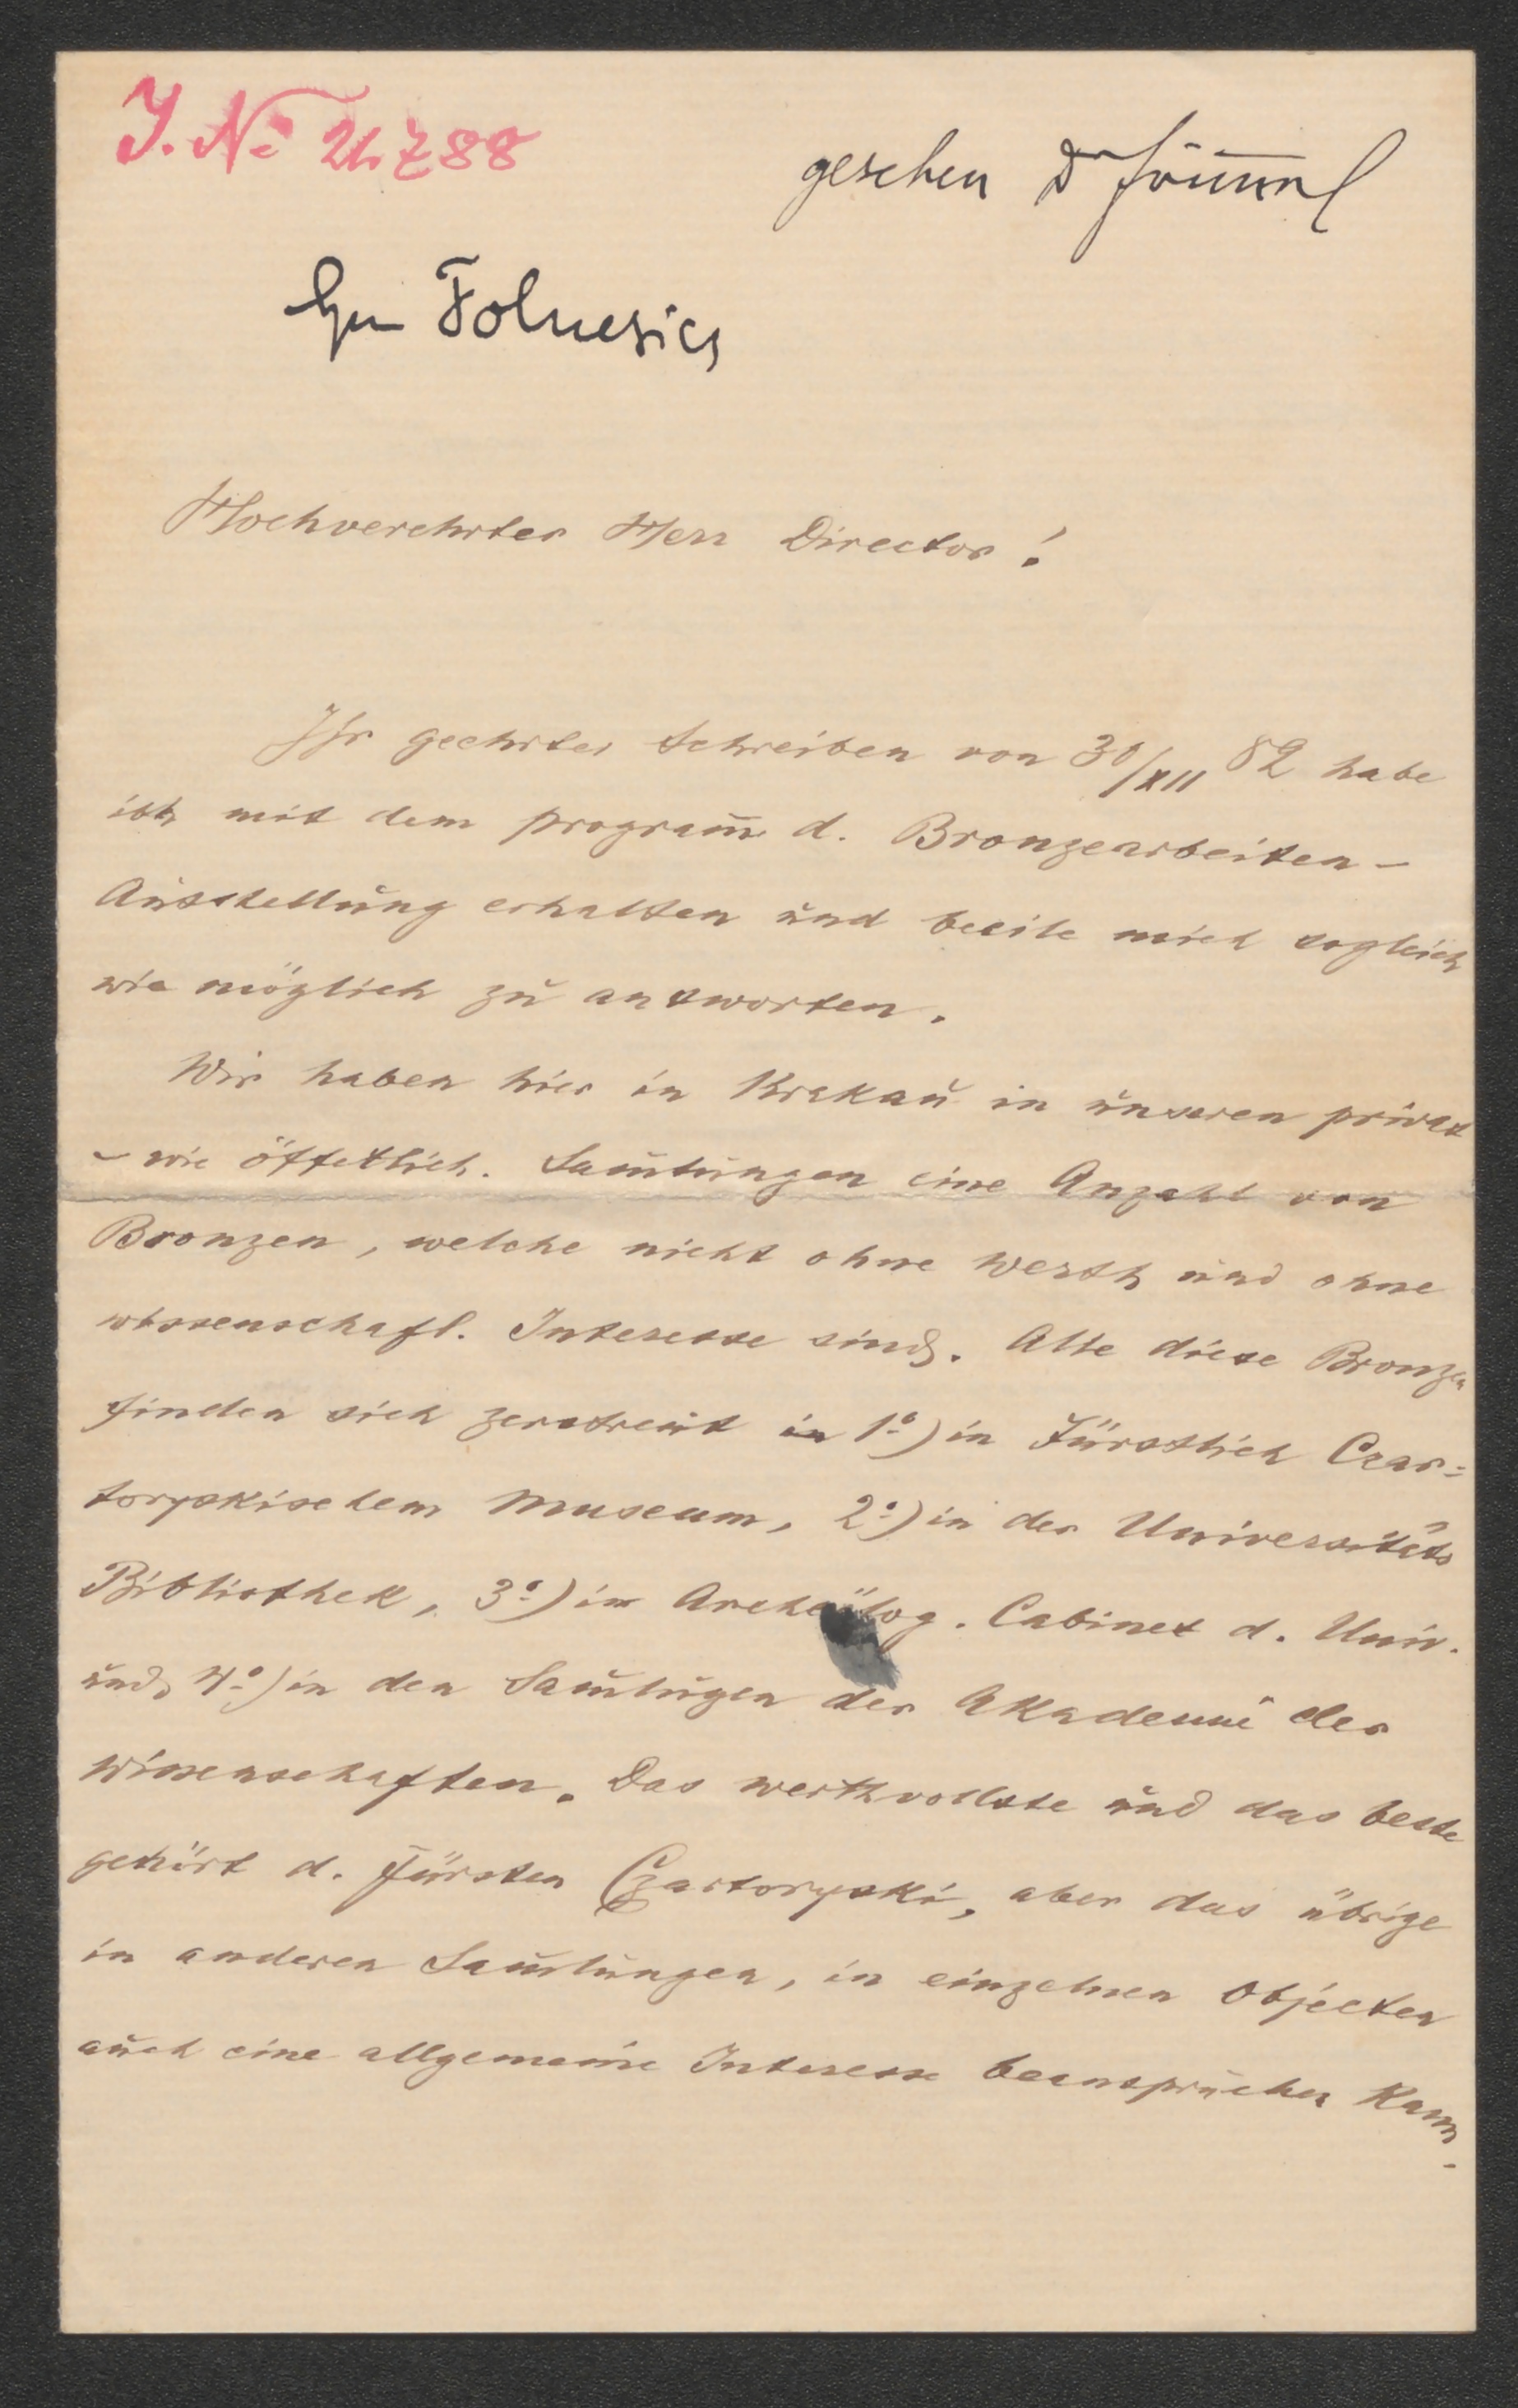 J. No
gesehen Dr
Hrn Folnesics
Hochverehrter Herr Director!
Ihr geehrtes Schreiben von 30/XII 82 habe
ich mit dem program̅ d. Bronzearbeiten-
Ausstellung erhalten und beeile mich sogleich
wie möglich zu antworten.
Wir haben hier in Krakau in unseren privat
- wie öffetlich. Sam̅lungen eine Anzahl von
Bronzen, welche nicht ohne Werth und ohne
wissenschafl. Interesse sind. Alle diese Bronzen
finden sich zerstreut in 1o) in Fürstlich Czar=
toryskischem Museum, 2o) in der Universitäts
Bibliothek, 3o) im Archäolog. Cabinet d. Univ.
und 4o) in den Sam̅lugen der Akademi der
Wissenschaften. Das werthvollste und das beste
gehört d. Fürsten Czartoryski, aber das übrige
in anderen Sam̅lungen, in einzelnen Objecten
auch eine allgemeine Interesse beanspruchen kann.